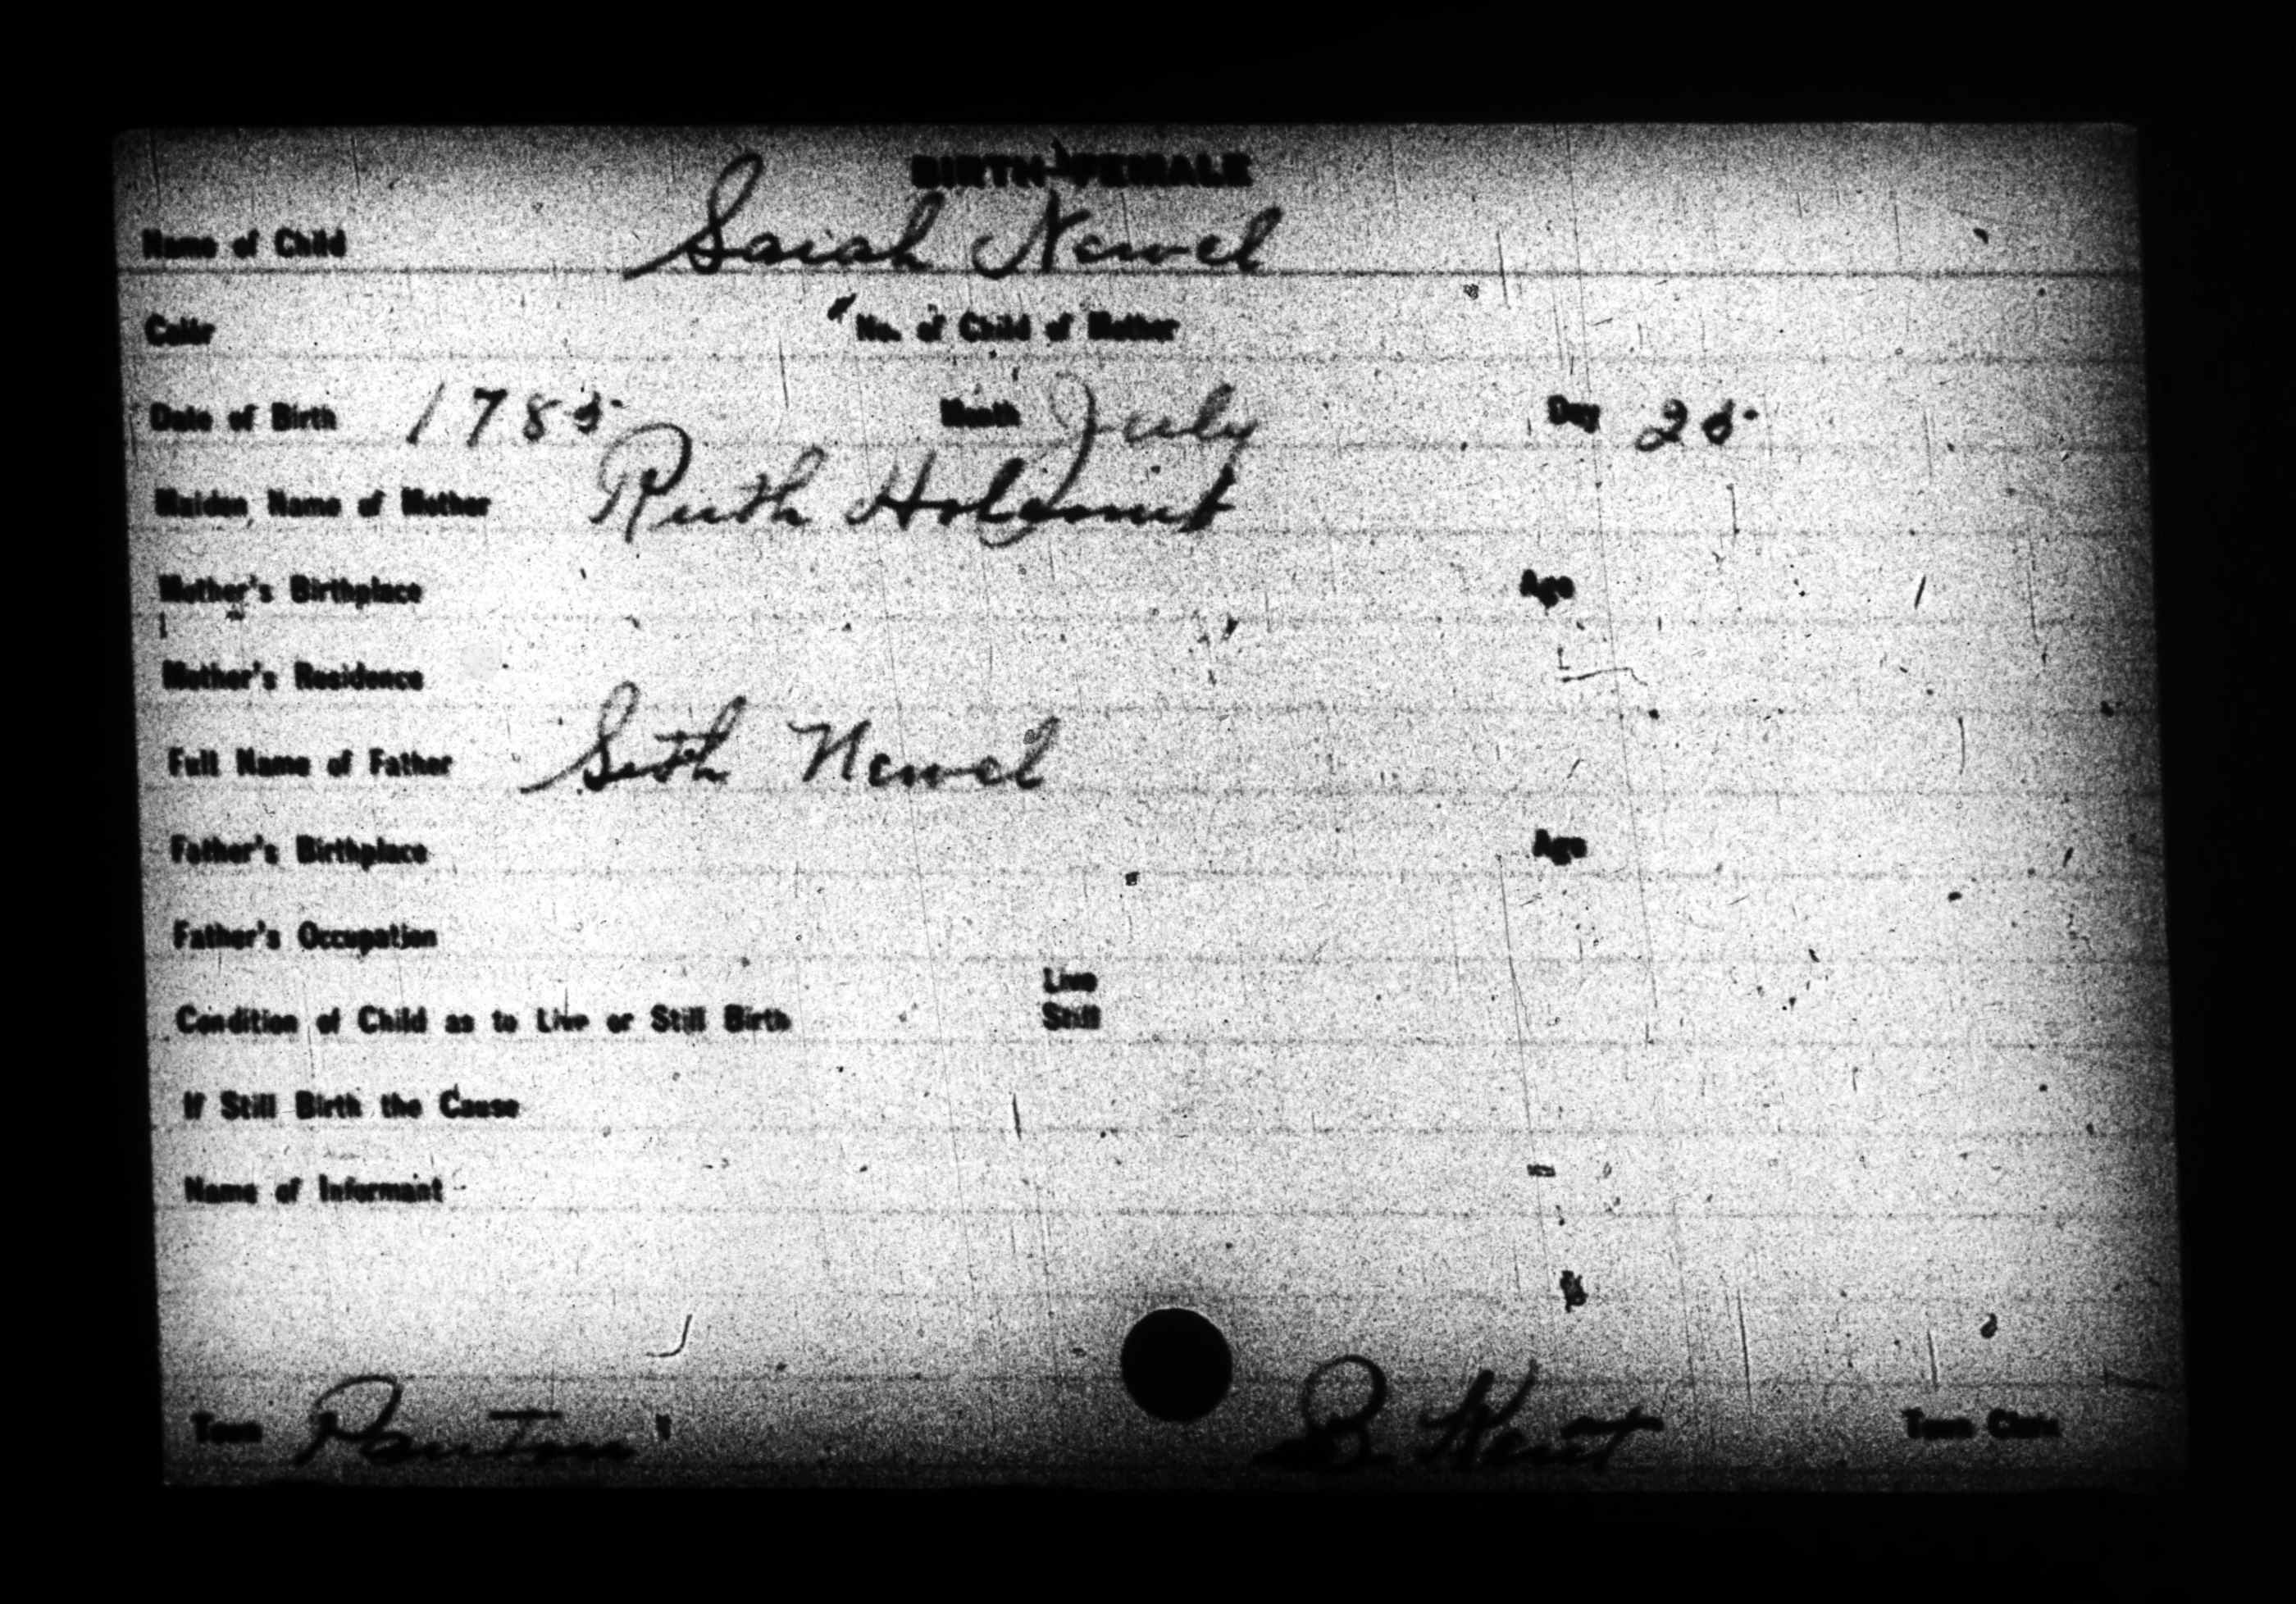 BIRTH-FEMALE
Name of Child Sarah Newel
Color No. of Child of Mother
Date of Birth 1785 Month July Day 25
Maiden Name of Mother Ruth
Mother's Birthplace Age
Mother's Residence
Full Name of Father Seth Newel
Father's Birthplace Age
Father's Occupation
Live
Condition of Child as to Live or Still Birth Still
If Still Birth the Cause
Name of Informant
Town Panton B Kent Town Clerk